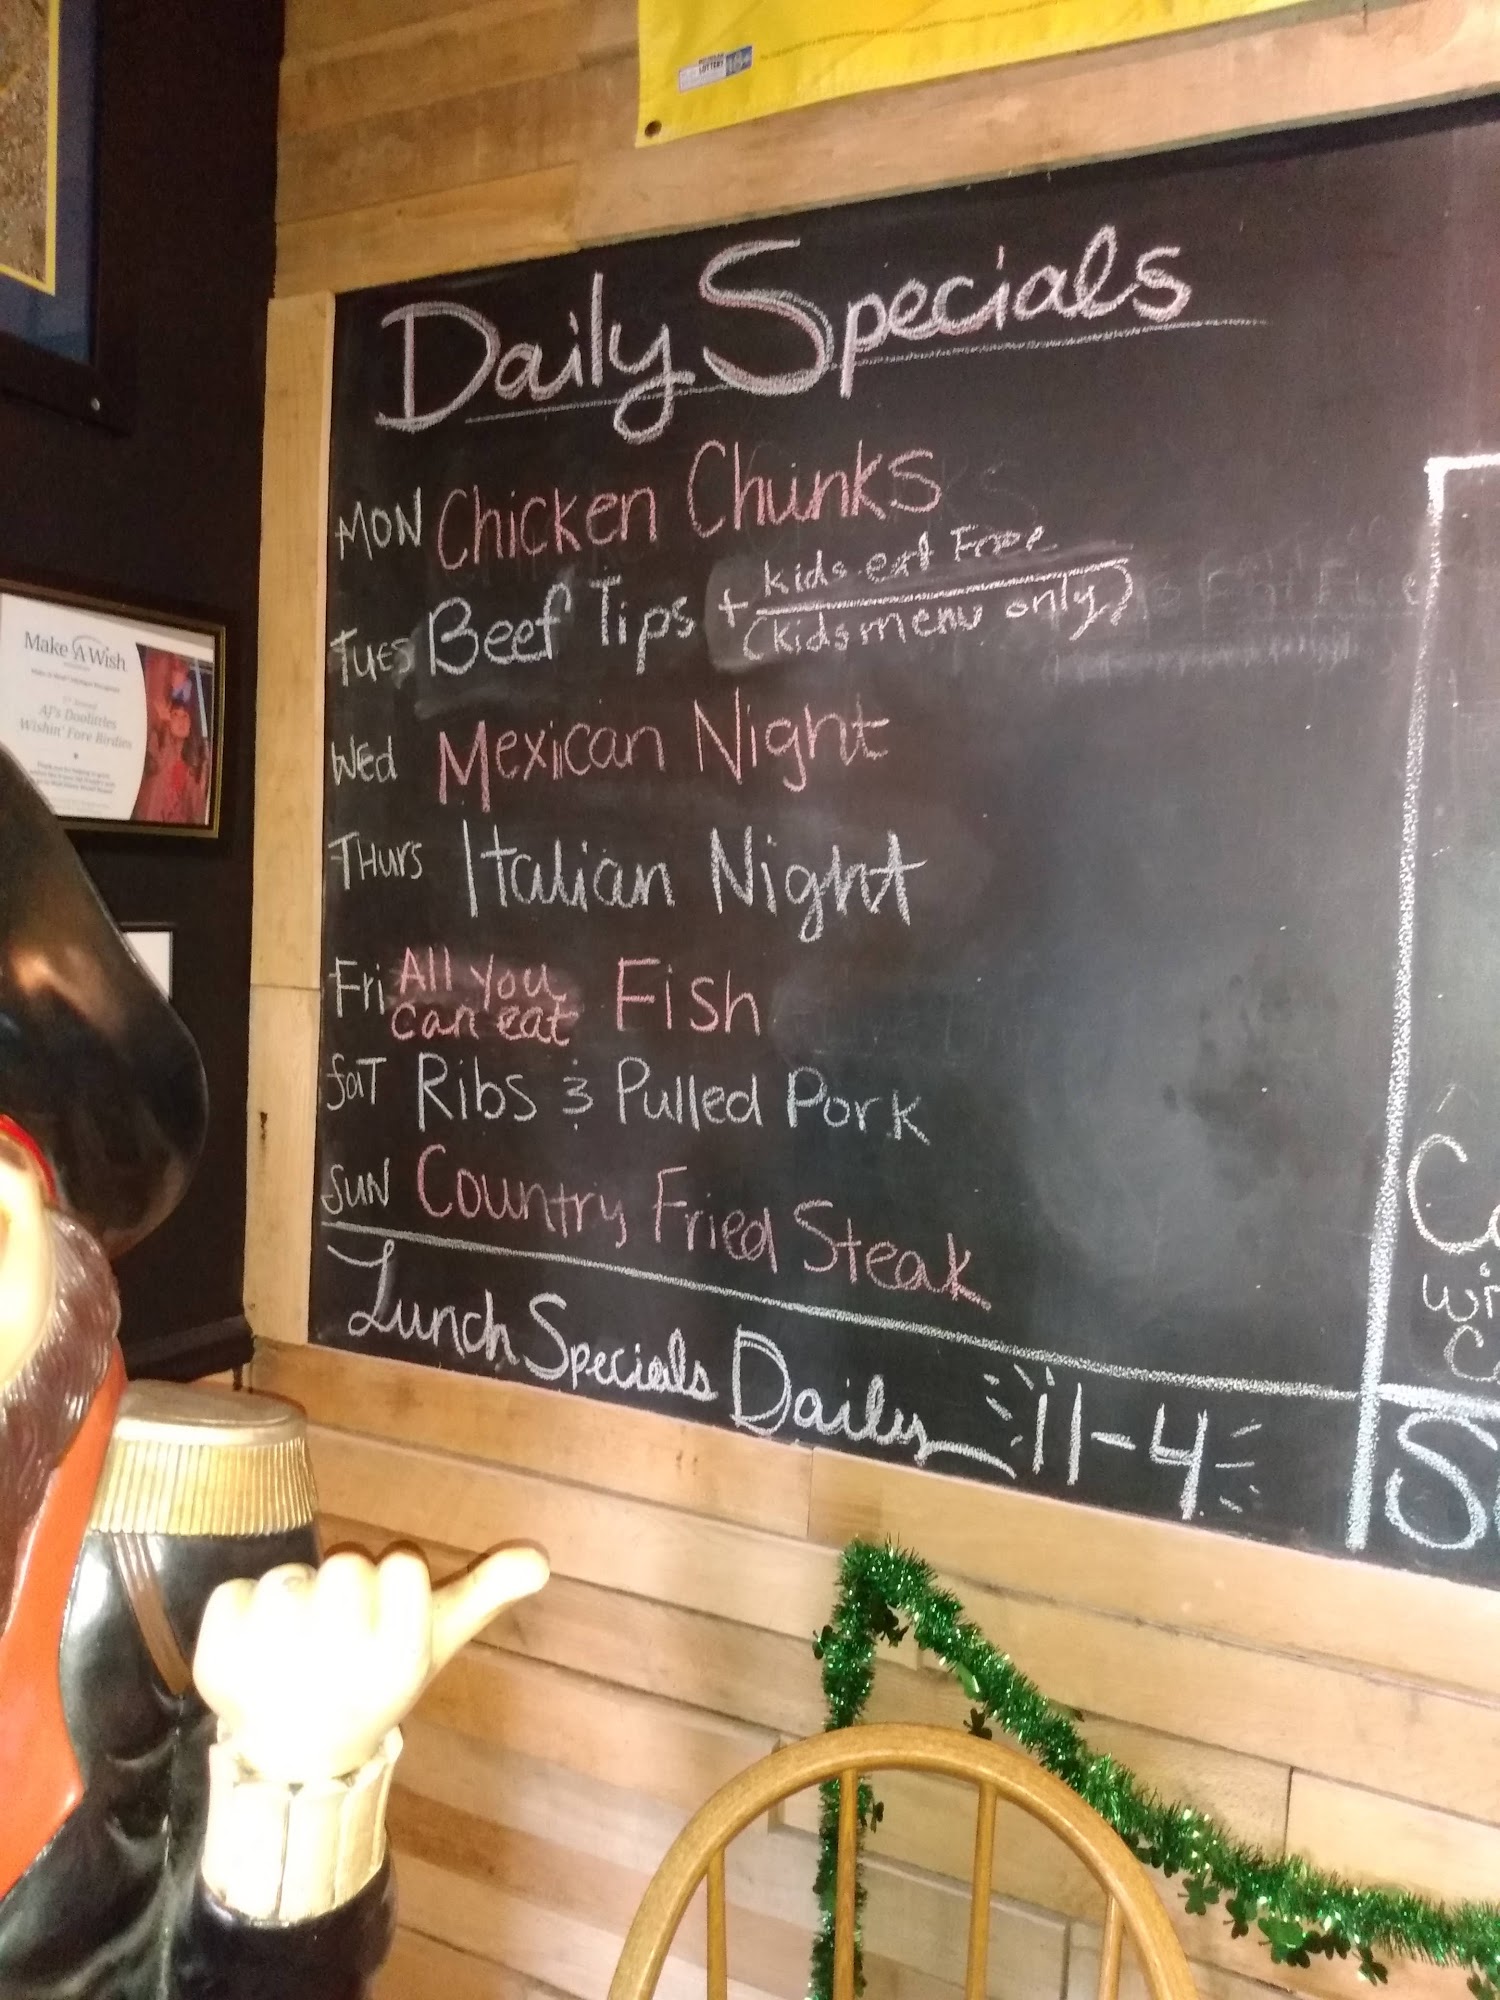 LOTTERY 18+
Daily Specials
MON Chicken Chunks
TUES Beef Tips + kids eat Free
(kids menu only)
Wed Mexican Night
THURS Italian Night
Fri All You can eat Fish
SAT Ribs & Pulled Pork
SUN Country Fried Steak
Lunch Specials Daily 11-4
Make A Wish
AJ's Doolittles
Wishin' Fore Birdies